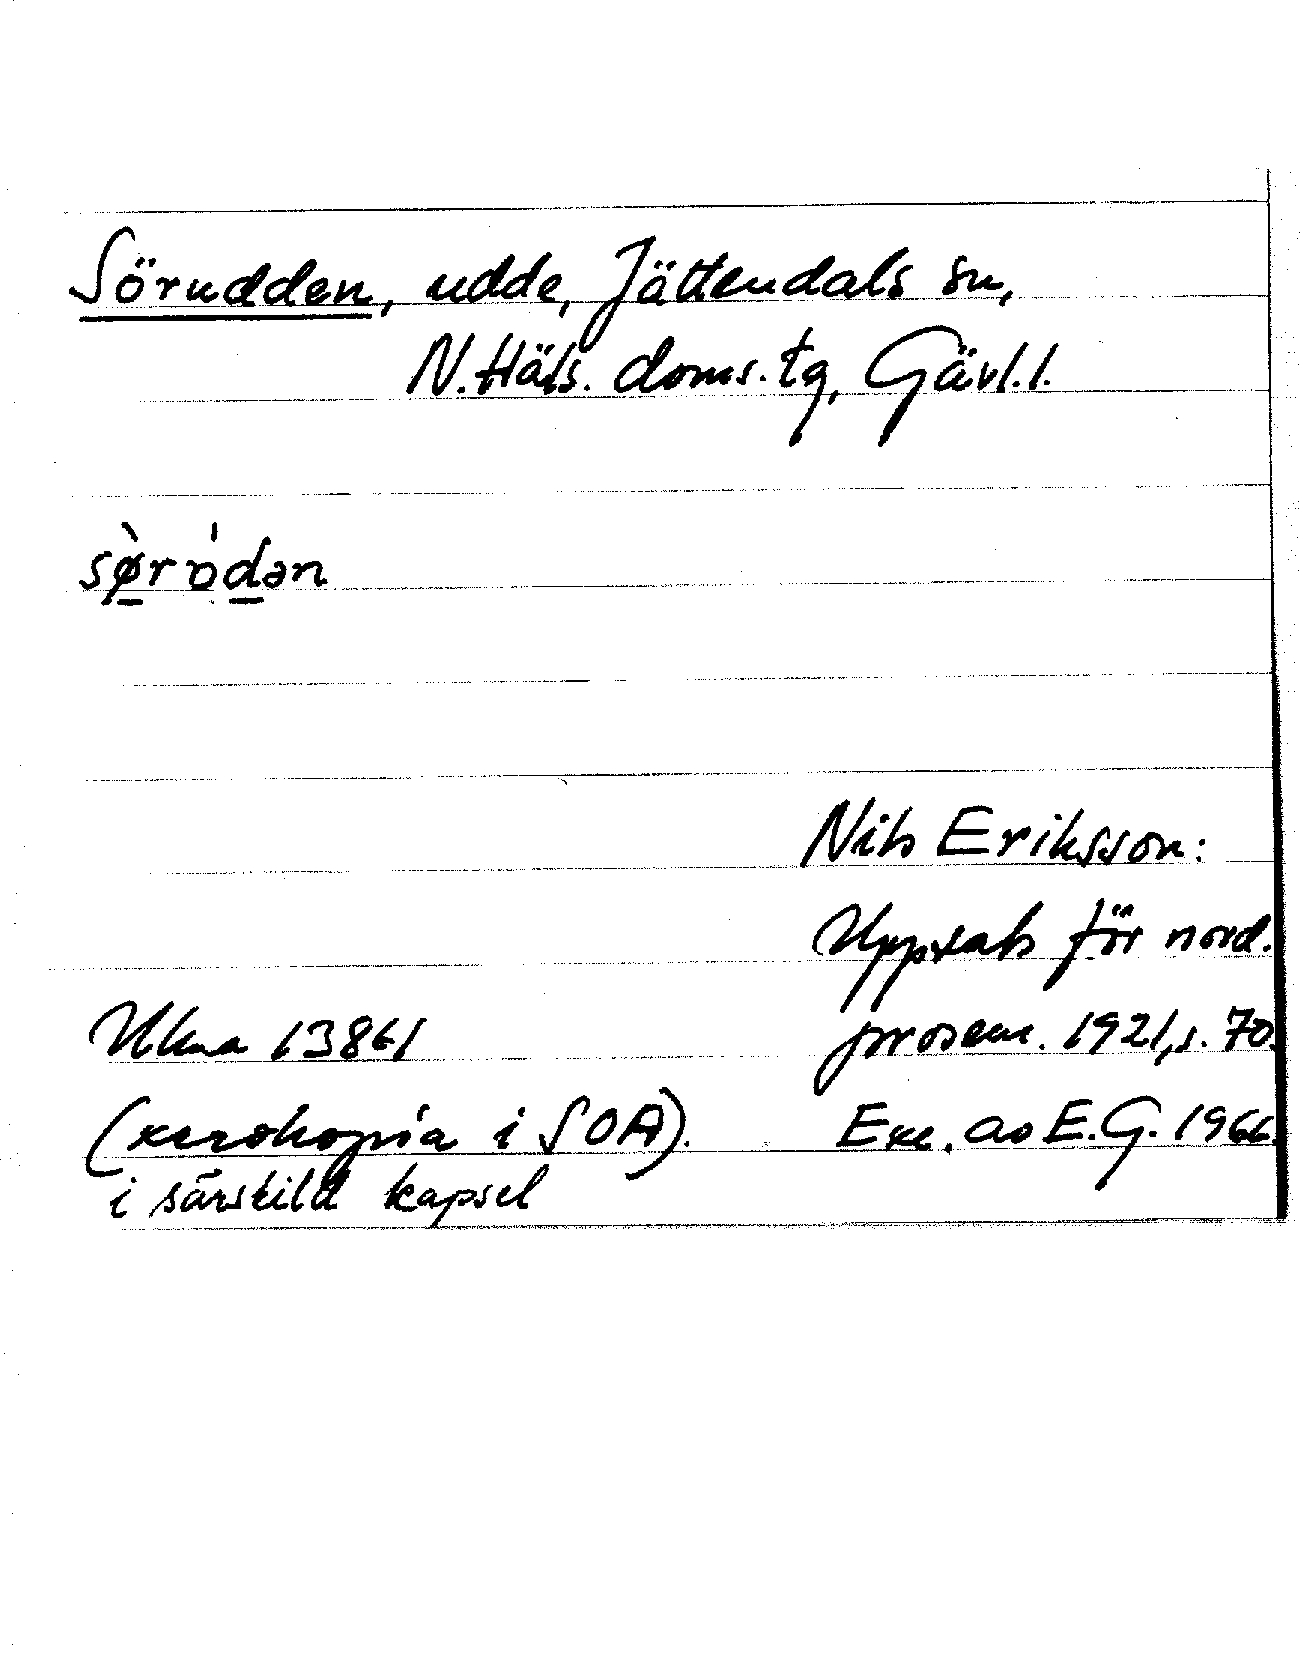 Sörudden, udde, Jättendals sn,
N. Häls. doms. tg, Gävl. l.
sø̀rʋ́dən
Nils Eriksson:
Uppsats för nord.
prosem. 1921, s. 70.
Ukna 13861
(xerokopia i SOA).
Exc. av E.G. 1966.
i särskild kapsel